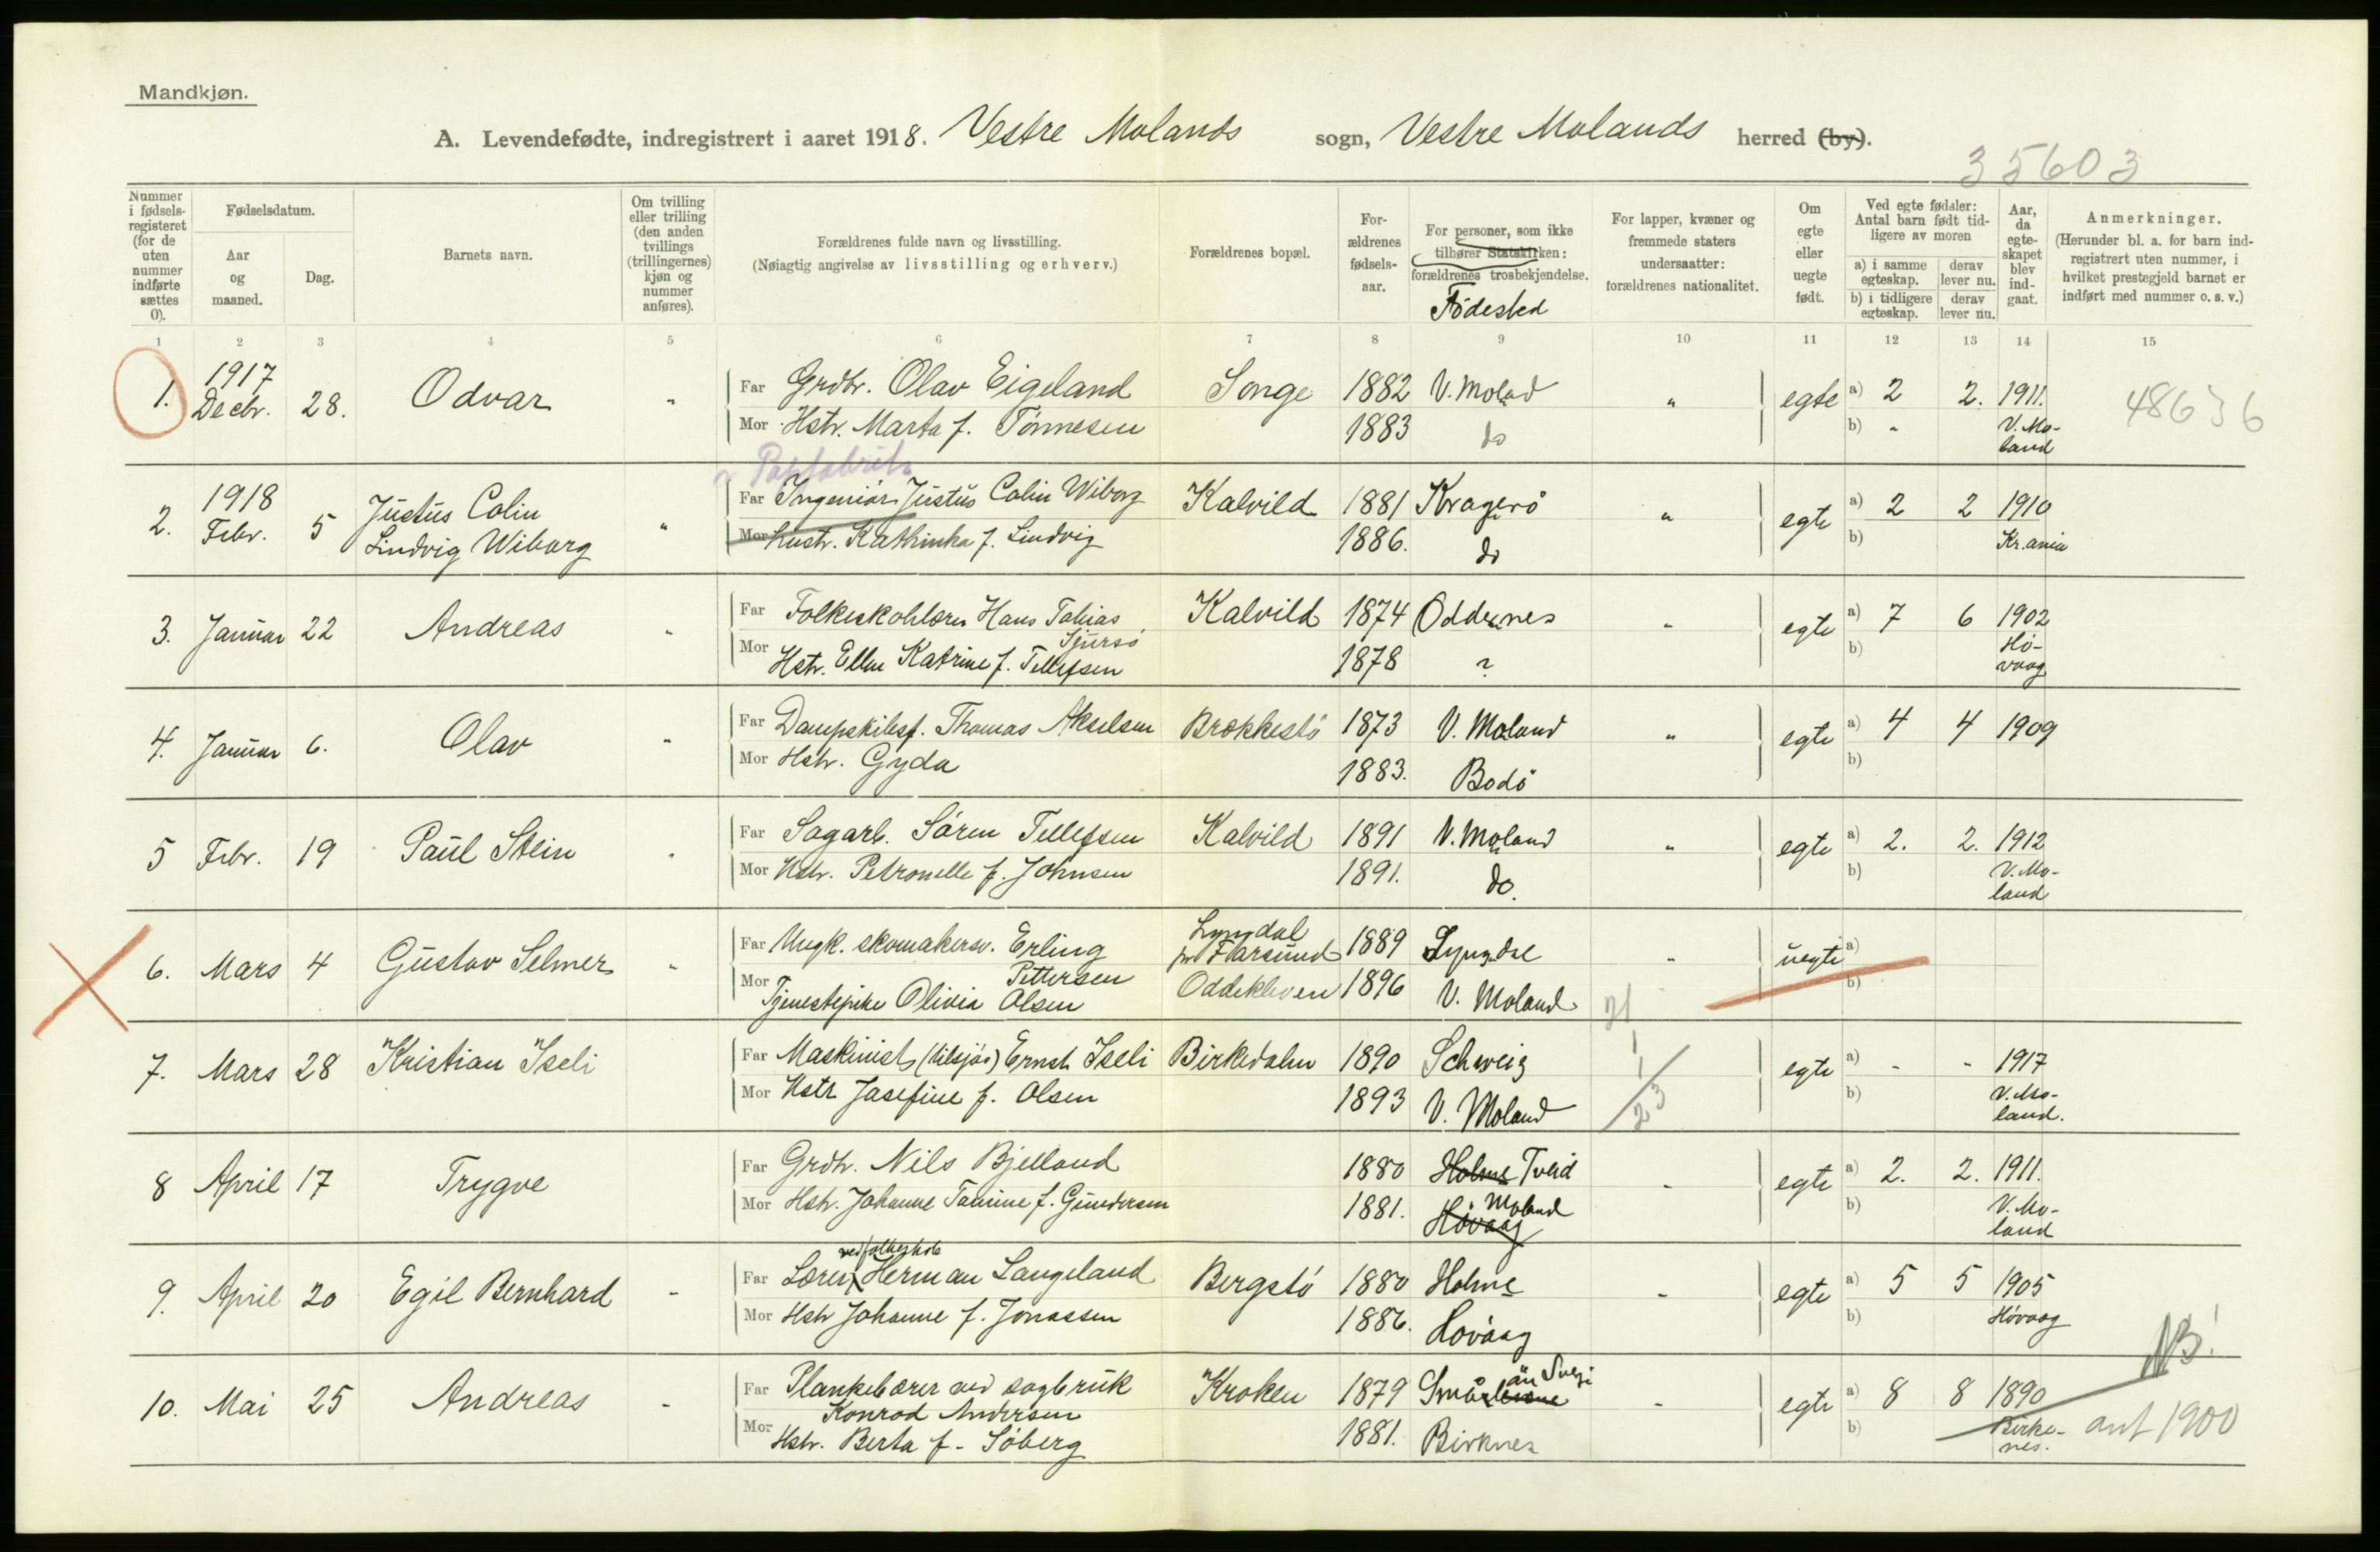 Mandkjøn.
A. Levendefødte, indregistrert i aaret 1918. Vestre Molands sogn, Vestre Molands herred (by).
35603
Nummer i fødsels-registeret (for de uten nummer indførte sættes 0).
Fødselsdatum.
Aar og maaned.
Dag.
Barnets navn.
Om tvilling eller trilling (den anden tvillings (trillingernes) kjøn og nummer anføres).
Forældrenes fulde navn og livsstilling.
(Nøiagtig angivelse av livsstilling og erhverv.)
Forældrenes bopæl.
For-ældrenes fødsels-aar.
For personer, som ikke tilhører Statskirken: forældrenes trosbekjendelse.
Fødested
For lapper, kvæner og fremmede staters undersaatter: forældrenes nationalitet.
Om egte eller uegte født.
Ved egte fødsler: Antal barn født tid-ligere av moren
a) i samme egteskap. derav lever nu.
b) i tidligere egteskap. derav lever nu.
Aar, da egte-skapet blev ind-gaat.
Anmerkninger.
(Herunder bl. a. for barn ind-registrert uten nummer, i hvilket prestegjeld barnet er indført med nummer o. s. v.)
1 2 3 4 5 6 7 8 9 10 11 12 13 14 15
1. 1917 Decbr. 28. Odvar " Far Grdbr. Olav Eigeland Songe 1882 V. Molad " egte a) 2 2. 1911. 48636
Mor Hstr. Marta f. Tönnesen 1883 do b) " V. Mo-land
Papfabrik
2. 1918 Febr. 5 Justus Colin Lindvig Wiborg " Far Ingeniör Justus Colin Wiborg Kalvild 1881 Kragerö " egte a) 2 2 1910
Mor Hustr. Kathinka f. Lindvig 1886. do b) Kr.ania
3. Januar 22 Andreas " Far Folkeskolelærer Hans Tobias Kalvild 1874 Oddernes " egte a) 7 6 1902
Mor Hstr. Ellen Katrine f. Tellefsen 1878 ? b) Hö-vaag
4. Januar 6. Olav " Far Dampskibsf. Thomas Akselsen Brækkestö 1873 V. Moland " egte a) 4 4 1909
Mor Hstr. Gyda 1883. Bodö b)
5 Febr. 19 Paul Stein " Far Sagarb. Sören Tellefsen Kalvild 1891 V. Moland " egte a) 2. 2. 1912
Mor Hstr. Petronelle f. Johnsen 1891. do. b) V. Mo-land
6. Mars 4 Gustav Selmer " Far Ungk. skomakersv. Erling Pettersen Lyngdal pr Farsund 1889 Lyngdal " uegte a)
Mor Tjenestepike Olivia Olsen Oddekleven 1896 V. Moland b)
7. Mars 28 Kristian Iseli Far Maskinist (tilsjös) Ernst Iseli Birkedalen 1890 Schweiz egte a) - - 1917
Mor Hstr Josefine f. Olsen 1893 V. Moland b) V. Mo-land.
8 April 17 Trygve Far Grdbr. Nils Bjelland 1880 Holme Tveid " egte a) 2. 2. 1911.
Mor Hstr. Johanne Tomine f. Gundersen 1881. Hövaag Moland b) V. Mo-land
9. April 20 Egil Bernhard - Far Lærer ved folkeskole Herman Langeland Bergstö 1880 Holme " egte a) 5 5 1905
Mor Hstr Johanne f. Jonassen 1886. Hövaag b) Hövaag
NB!
10. Mai 25 Andreas - Far Plankebærer ved sagbruk Konrad Andersen Kroken 1879 - egte a) 8 8 1890
Mor Hstr. Berta f. Söberg 1881. Birknes b) Birke-nes. ant 1900